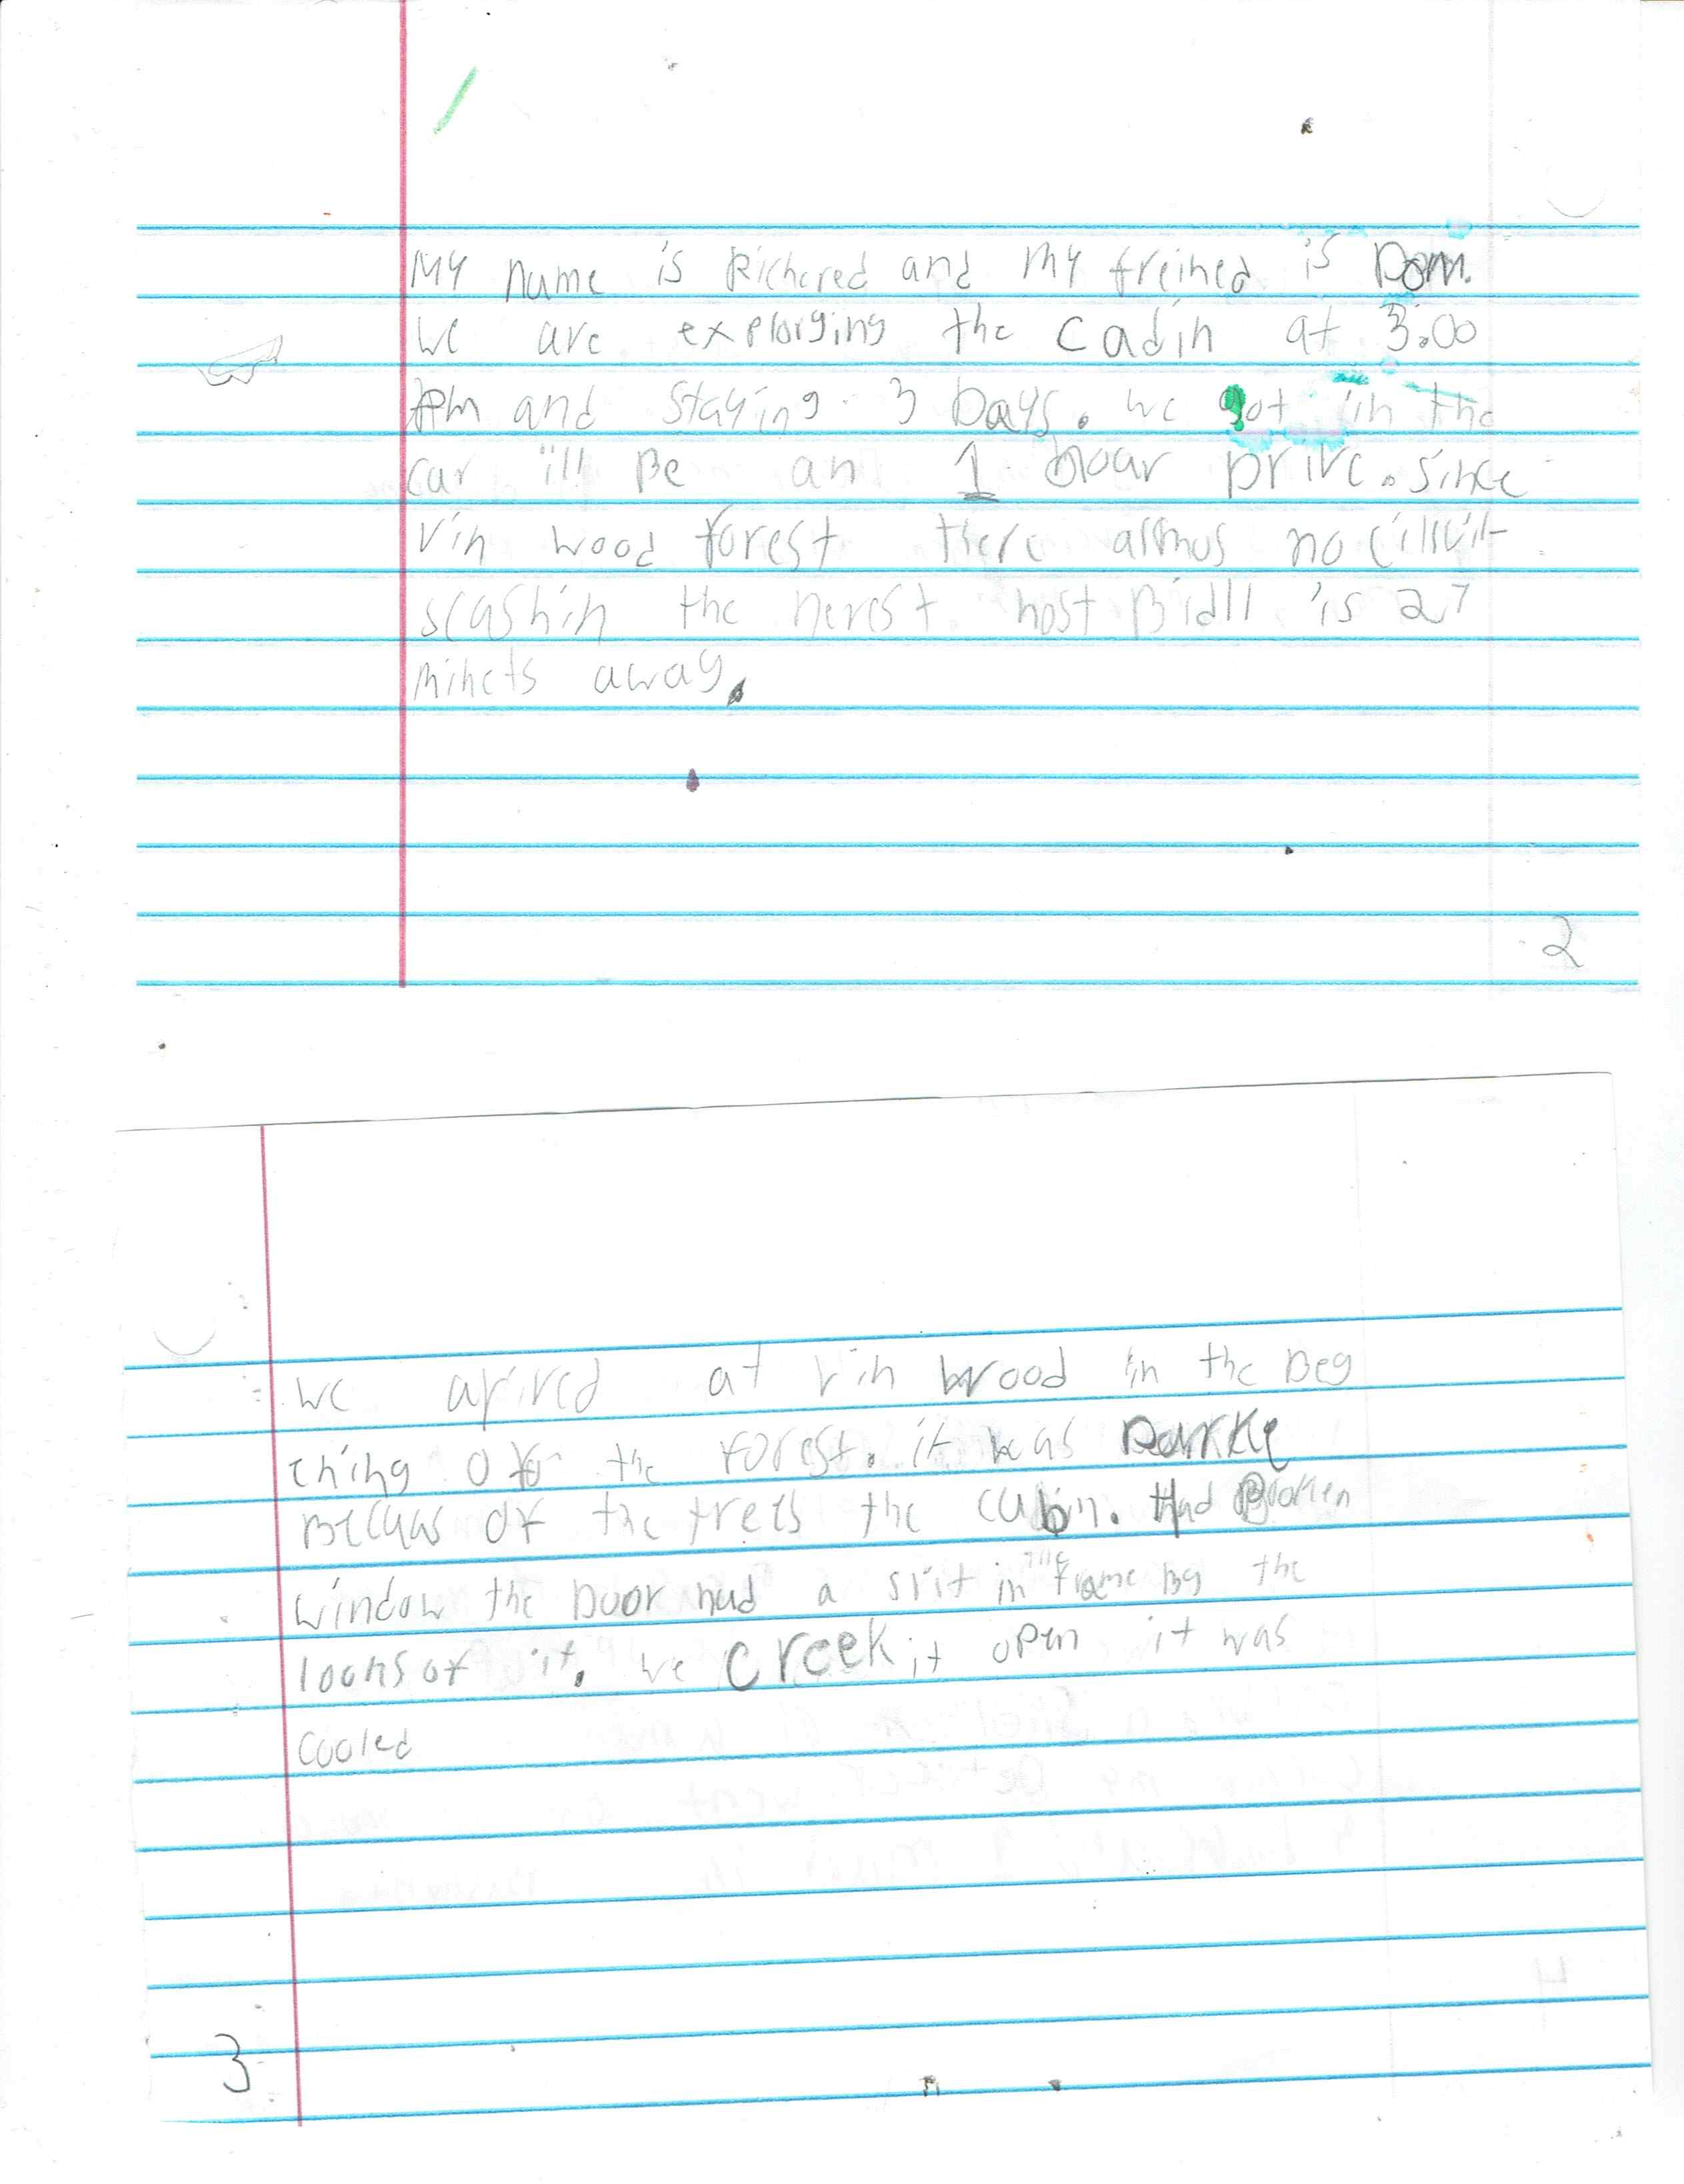 My name is Richered and my freined is Dom.
we are explorging the cadin at 3:00
Pm and staying 3 Days. we got in the
car ill Be an 1 hour Drive. since
Vin wood forest there allmos no cillivit
scashin the nerest host Bidll is 27
minets away.
2
we arired at Vin wood in the Beg
ening of the forest. it was Darkke
Because of the trees the cubin. Had Broken
window the Door had a slit in the frame by the
looks of it. we creek it open it was
cooled
3